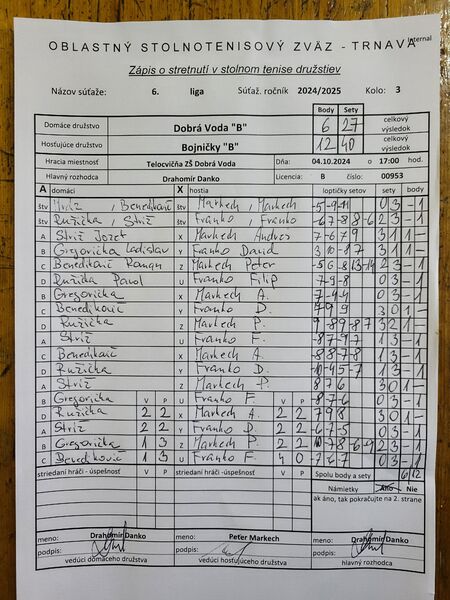 Internal
OBLASTNÝ STOLNOTENISOVÝ ZVÄZ - TRNAVA
Zápis o stretnutí v stolnom tenise družstiev
Názov súťaže: 6. liga Súťaž. ročník 2024/2025 Kolo: 3
Body Sety
Domáce družstvo Dobrá Voda "B" 6 27 celkový výsledok
Hosťujúce družstvo Bojničky "B" 12 40 celkový výsledok
Hracia miestnosť Telocvičňa ZŠ Dobrá Voda Dňa: 04.10.2024 o 17:00 hod.
Hlavný rozhodca Drahomír Danko Licencia: B číslo 00953
A domáci X hostia loptičky setov sety body
štv Hríz, Benedikovič štv Markech, Markech -5 -9 -11 0 3 - 1
štv Ružička, Stríž štv Franko, Franko -6 7 -8 8 -6 2 3 - 1
A Stríž Jozef X Markech Andrej 7 -6 7 9 3 1 1 -
B Gregorička Ladislav Y Franko David 3 10 -1 7 3 1 1 -
C Benedikovič Roman Z Markech Peter 2 3 - 1
D Ružička Pavol U Franko Filip -7 -9 -8 0 3 - 1
B Gregorička X Markech A. -7 -4 -4 0 3 - 1
C Benedikovič Y Franko D. 7 9 9 3 0 1 -
D Ružička Z Markech P. 9 -8 9 -8 7 3 2 1 -
A Stríž U Franko F. -8 7 -9 7 1 3 - 1
C Benedikovič X Markech A. -8 8 -7 8 1 3 - 1
D Ružička Y Franko D. -10 -4 5 -7 1 3 - 1
A Stríž Z Markech P. 8 7 6 3 0 1 -
B Gregorička V P U Franko F. V P -8 -7 -6 0 3 - 1
D Ružička 2 2 X Markech A. 2 2 7 9 8 3 0 1 -
A Stríž 2 2 Y Franko D. 2 2 -6 -7 -5 0 3 - 1
B Gregorička 1 3 Z Markech P. 2 2 2 3 - 1
C Benedikovič 1 3 U Franko F. 4 0 -7 -6 -7 0 3 - 1
striedaní hráči - úspešnosť V P striedaní hráči - úspešnosť V P Spolu body a sety 6 12
Námietky Áno Nie
ak áno, tak pokračujte na 2. strane
meno: Drahomír Danko meno: Peter Markech meno: Drahomír Danko
podpis: podpis: podpis:
vedúci domáceho družstva vedúci hosťujúceho družstva hlavný rozhodca